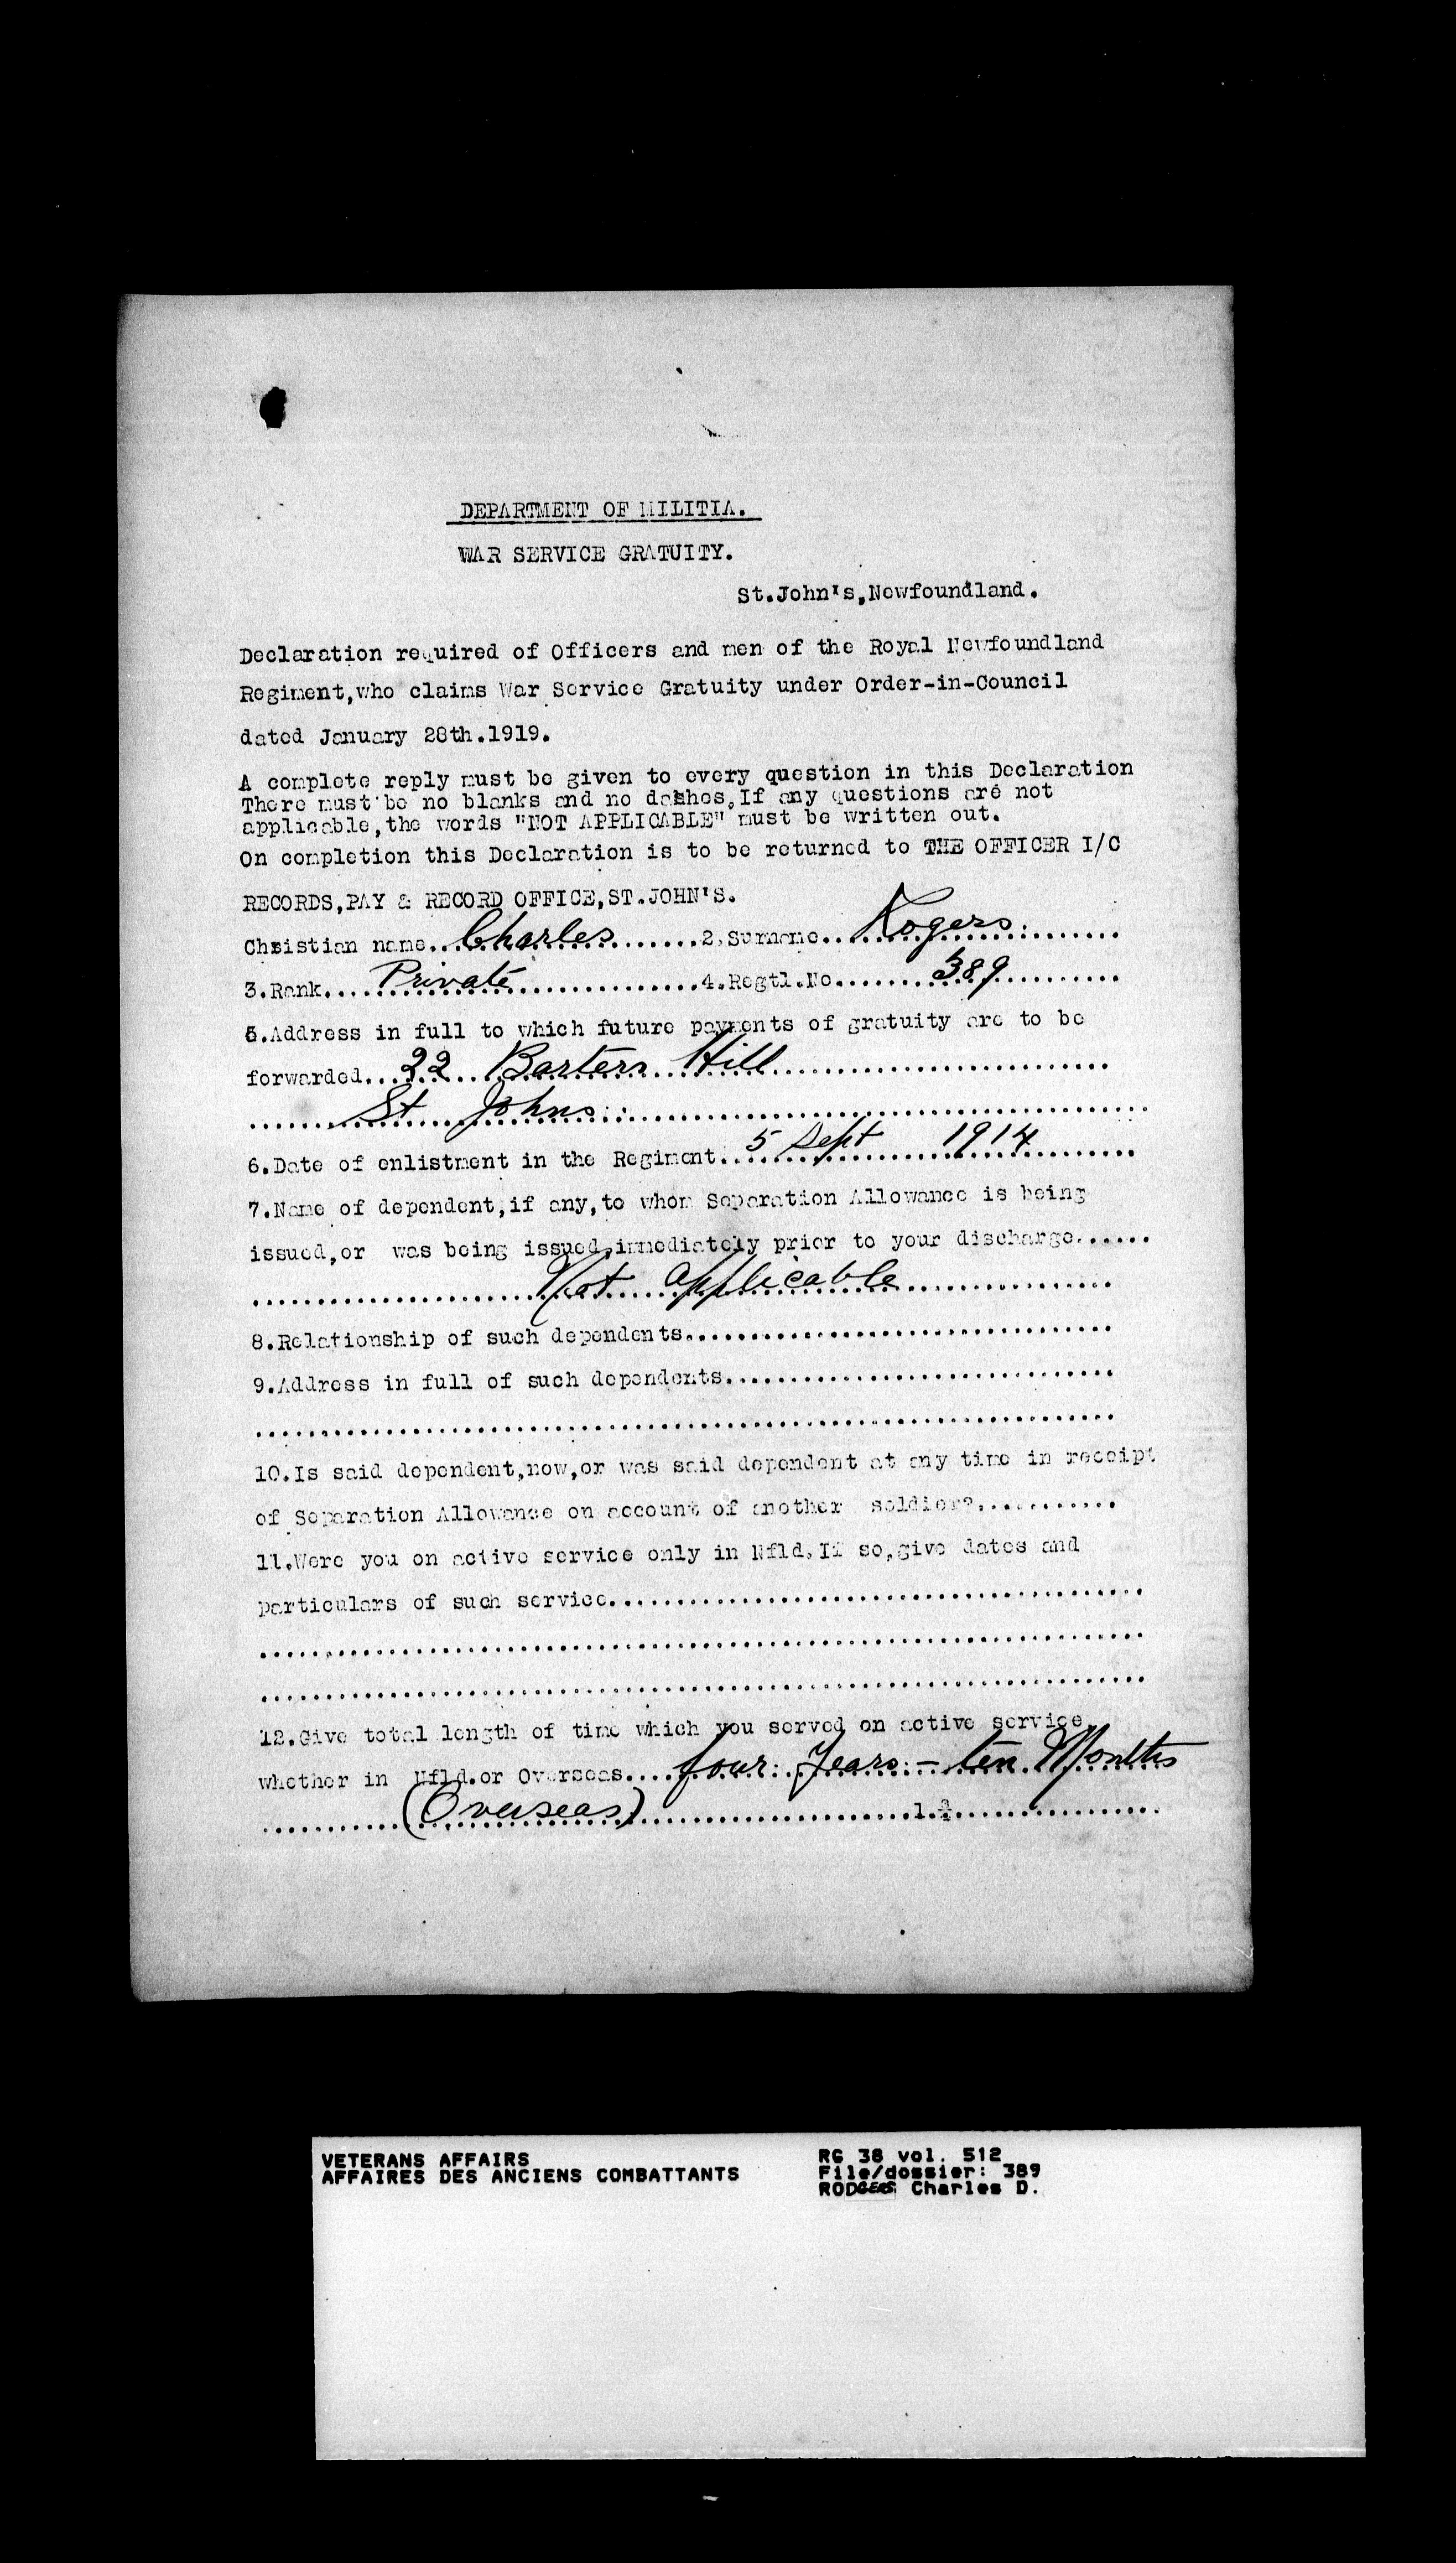 DEPARTMENT OF MILITIA.
WAR SERVICE GRATUITY.
St.John's,Newfoundland.
Declaration required of Officers and men of the Royal Newfoundland
Regiment,who claims War Service Gratuity under Order-in-Council
dated January 28th.1919.
A complete reply must be given to every question in this Declaration
There must be no blanks and no dashes.If any questions are not
applicable,the words "NOT APPLICABLE" must be written out.
On completion this Declaration is to be returned to THE OFFICER I/C
RECORDS,PAY & RECORD OFFICE,ST.JOHN'S.
Christian name..Charles.......2.Surname..Rogers........
3.Rank....Private..............4.Regtl.No........389.........
5.Address in full to which future payments of gratuity are to be
forwarded...22 Barters Hill..........................
........St Johns........................................
6.Date of enlistment in the Regiment..5 Sept 1914........
7.Name of dependent,if any,to whom Separation Allowance is being
issued,or was being issued,immediately prior to your discharge......
......................Not applicable................
8.Relationship of such dependents.................................
9.Address in full of such dependents..............................
..................................................................
10.Is said dependent,now,or was said dependent at any time in receipt
of Separation Allowance on account of another soldier?...........
11.Were you on active service only in Nfld.If so,give dates and
particulars of such service.........................................
....................................................................
....................................................................
12.Give total length of time which you served on active service,
whether in Nfld.or Overseas....four Years - ten Months
...........(Overseas).....................1.........................
VETERANS AFFAIRS
AFFAIRES DES ANCIENS COMBATTANTS
RG 38 vol. 512
File/dossier: 389
RODGERS Charles D.